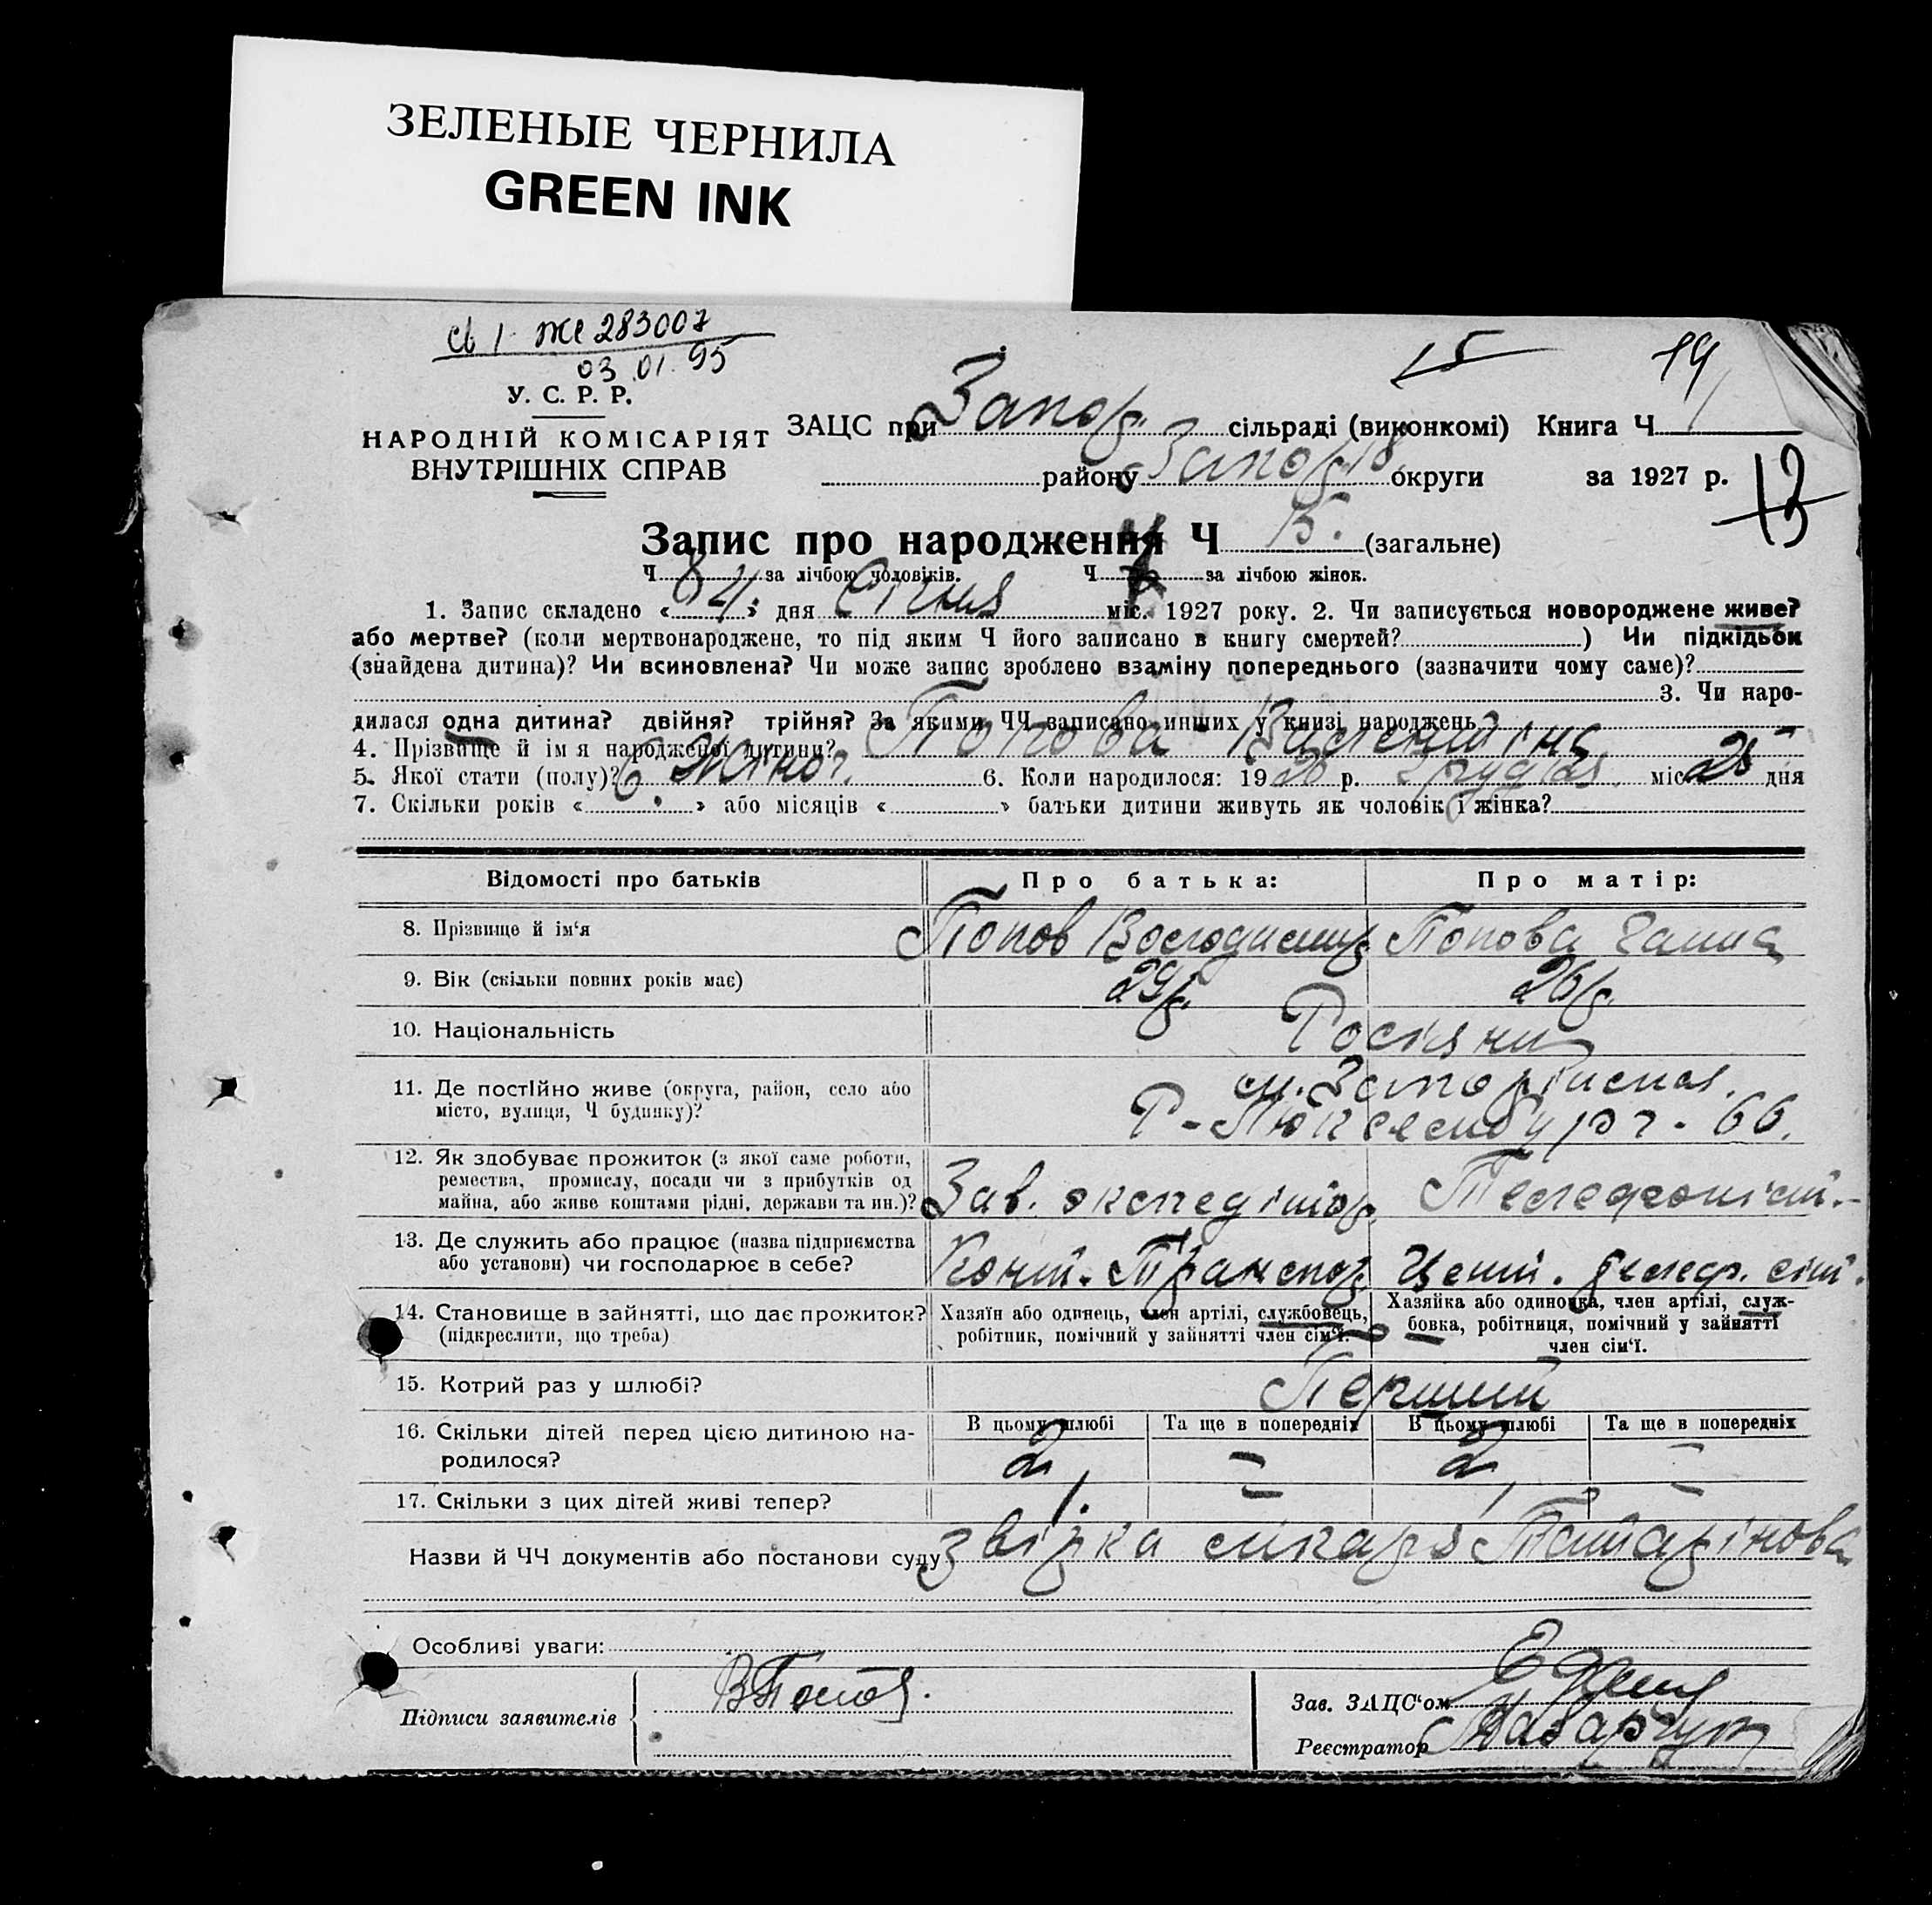 ЗЕЛЕНЫЕ ЧЕРНИЛА
GREEN INK
св 1. же 283007
03.01.95
15
19
У. С. Р. Р.
НАРОДНІЙ КОМІСАРІЯТ
ВНУТРІШНІХ СПРАВ
ЗАЦС при Запор. сільраді (виконкомі) Книга Ч 1
району Запоріз. округи за 1927 р.
13
Запис про народження Ч 15. (загальне)
Ч 8 за лічбою чоловіків. Ч за лічбою жінок.
1. Запис складено « 4 » дня Січня міс. 1927 року. 2. Чи записується новороджене живе?
або мертве? (коли мертвонароджене, то під яким Ч його записано в книгу смертей? ) Чи підкідьок
(знайдена дитина)? Чи всиновлена? Чи може запис зроблено взаміну попереднього (зазначити чому саме)?
3. Чи наро-
дилася одна дитина? двійня? трійня? За якими ЧЧ записано инших у книзі народжень?
4. Прізвище й ім'я народженої дитини? Попова Валентина
5. Якої стати (полу)? Жіноч. 6. Коли народилося: 19 26 р. Грудня міс. 25 дня
7. Скільки років « » або місяців « » батьки дитини живуть як чоловік і жінка?
Відомості про батьків Про батька: Про матір:
8. Прізвище й ім'я Попов Володимир Попова Ганна
9. Вік (скільки повних років має) 29 р. 26 р.
10. Національність Росіяни
11. Де постійно живе (округа, район, село або
місто, вулиця, Ч будинку)? м. Запоріжжя.
Р-Люксембург - 66.
12. Як здобуває прожиток (з якої саме роботи,
ремества, промислу, посади чи з прибутків од
майна, або живе коштами рідні, держави та ин.)? Зав. экспедітор. Телефоніст.-
13. Де служить або працює (назва підприємства
або установи) чи господарює в себе? Конт. Транспор. Цент. телеф. сіт.
14. Становище в зайнятті, що дає прожиток?
(підкреслити, що треба)
Хазяїн або одинець, член артілі, службовець,
робітник, помічний у зайнятті член сім'ї.
Хазяйка або одиночка, член артілі, служ-
бовка, робітниця, помічний у зайнятті
член сім'ї.
15. Котрий раз у шлюбі? Перший
16. Скільки дітей перед цією дитиною на-
родилося?
В цьому шлюбі Та ще в попередніх В цьому шлюбі Та ще в попередніх
2 – 2 –
17. Скільки з цих дітей живі тепер? 1. – 1 –
Назви й ЧЧ документів або постанови суду звірка лікаря Татарінова
Особливі уваги:
Підписи заявителів В Попов.
Зав. ЗАЦС'ом
Реєстратор